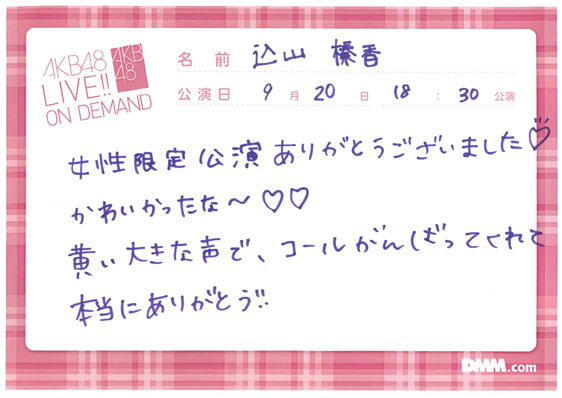 AKB48
LIVE!!
ON DEMAND
AKB
48
名 前 込山 榛香
公演日 9月 20日 18:30公演
女性限定公演ありがとうございました♡
かわいかったな〜♡♡
黄い大きな声で、コールがんばってくれて
本当にありがとう!!
DMM.com